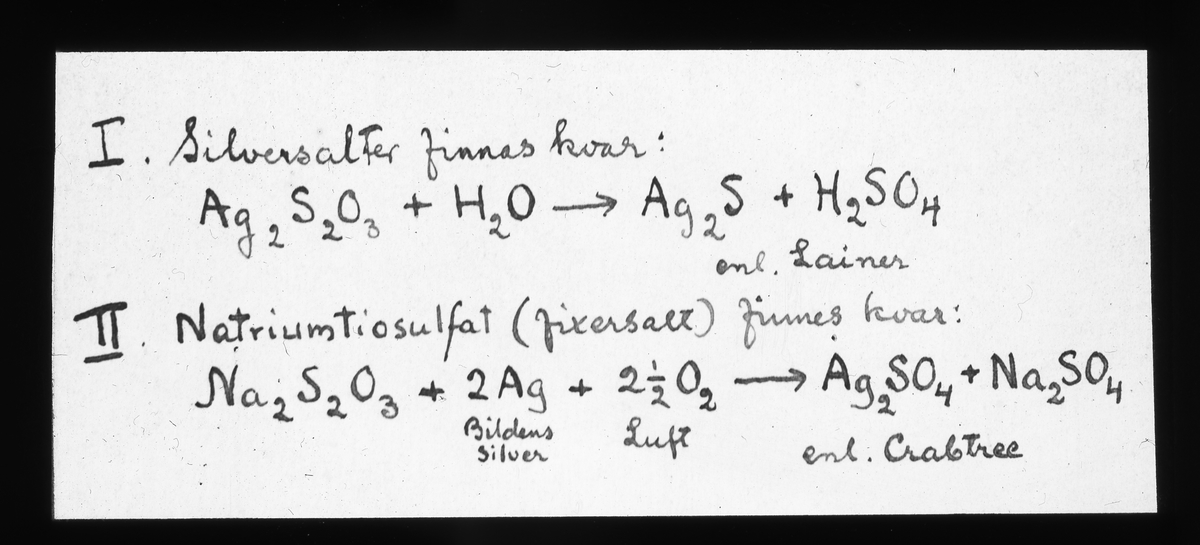 I. Silversalter finnas kvar:
Ag₂S₂O₃ + H₂O → Ag₂S + H₂SO₄
enl. Lainer
II. Natriumtiosulfat (fixersalt) finnes kvar:
Na₂S₂O₃ + 2Ag + 2½O₂ → Ag₂SO₄ + Na₂SO₄
Bildens Luft
silver
enl. Crabtree